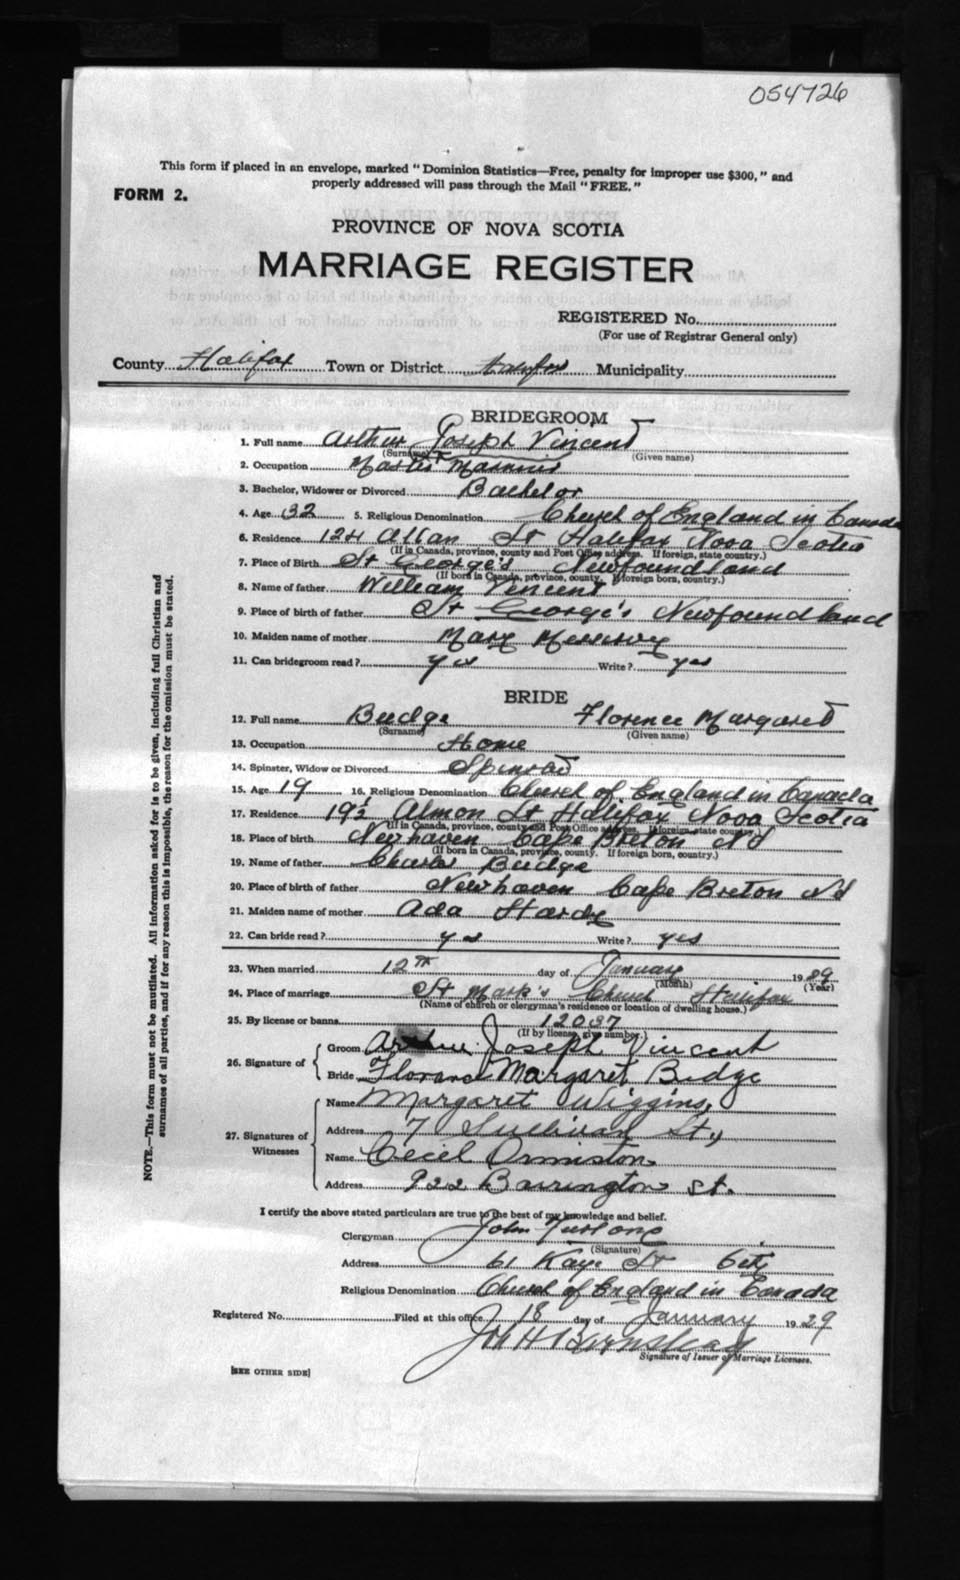 054726
This form if placed in an envelope, marked "Dominion Statistics—Free, penalty for improper use $300," and
properly addressed will pass through the Mail "FREE."
FORM 2.
PROVINCE OF NOVA SCOTIA
MARRIAGE REGISTER
REGISTERED No.
(For use of Registrar General only)
County Halifax Town or District Halifax Municipality
BRIDEGROOM
1. Full name Arthur Joseph Vincent
(Surname) (Given name)
2. Occupation Master Mariner
3. Bachelor, Widower or Divorced Bachelor
4. Age 32 5. Religious Denomination Church of England in Canada
6. Residence 124 Allan St Halifax Nova Scotia
(If in Canada, province, county and Post Office address. If foreign, state country.)
7. Place of Birth St George's Newfoundland
(If born in Canada, province, county. If foreign born, country.)
8. Name of father William Vincent
9. Place of birth of father St George's Newfoundland
10. Maiden name of mother Mary
11. Can bridegroom read? yes Write? yes
BRIDE
12. Full name Budge Florence Margaret
(Surname) (Given name)
13. Occupation Home
14. Spinster, Widow or Divorced Spinster
15. Age 19 16. Religious Denomination Church of England in Canada
17. Residence 19½ Almon St Halifax Nova Scotia
(If in Canada, province, county and Post Office address. If foreign, state country.)
18. Place of birth Newhaven Cape Breton NS
(If born in Canada, province, county. If foreign born, country.)
19. Name of father Charles Budge
20. Place of birth of father Newhaven Cape Breton NS
21. Maiden name of mother Ada Hardy
22. Can bride read? yes Write? yes
23. When married 12TH day of January 1929
(Month) (Year)
24. Place of marriage St Mark's Church Halifax
(Name of church or clergyman's residence or location of dwelling house.)
25. By license or banns 12037
(If by license, give number.)
26. Signature of Groom Arthur Joseph Vincent
Bride Florence Margaret Budge
27. Signatures of Witnesses
Name Margaret Wiggins,
Address 7 Sullivan St.,
Name Cecil Ormiston
Address 922 Barrington St.
I certify the above stated particulars are true to the best of my knowledge and belief.
Clergyman John Furlong
(Signature)
Address 61 Kaye St City
Religious Denomination Church of England in Canada
Registered No. Filed at this office 18 day of January 1929
Signature of Issuer of Marriage Licenses.
[SEE OTHER SIDE]
NOTE.—This form must not be mutilated. All information asked for is to be given, including full Christian and
surnames of all parties, and if for any reason this is impossible, the reason for the omission must be stated.